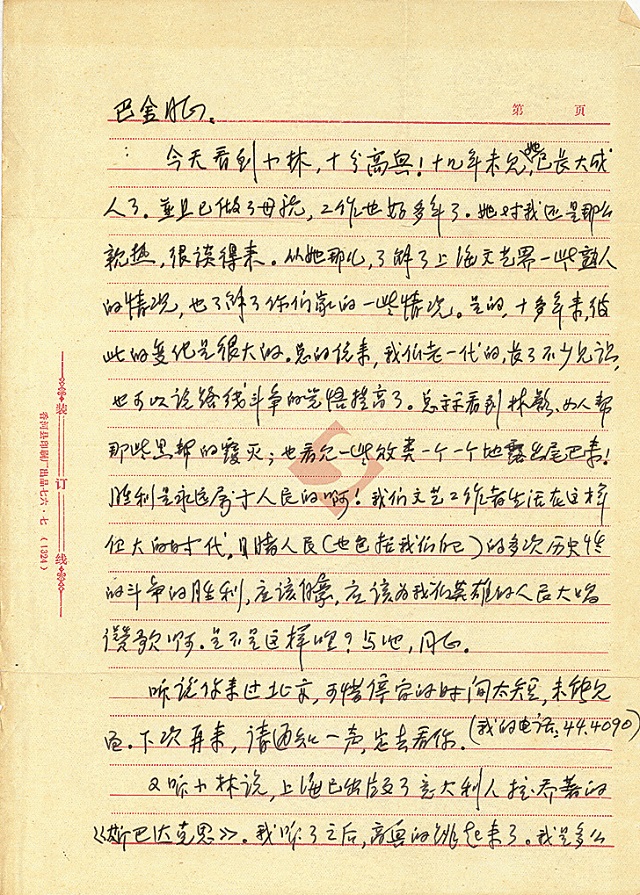 第 页
巴金同志。
今天看到小林,十分高兴!十几年未见,她已长大成
人了。并且已做了母亲,工作也好多年了。她对我还是那么
亲热,很谈得来。从她那儿,了解了上海文艺界一些熟人
的情况,也了解了你们家的一些情况。是的,十多年来,彼
此的变化是很大的。总的说来,我们老一代的,长了不少见识,
也可以说路线斗争的觉悟提高了。看到林彪、四人帮
那些黑帮的覆灭;也看见一些败类一个一个地露出尾巴来!
胜利是永远属于人民的啊!我们文艺工作者生活在这样
伟大的时代,目睹人民(也包括我们自己)的多次历史性
的斗争的胜利,应该 应该为我们英雄的人民大唱
赞歌啊。是不是这样呢?同志。
听说你来过北京,可惜停留的时间太短,未能见
面。下次再来,请通知一声,定去看你。(我的电话:44.4090)
又听小林说,上海已出版了意大利人 乔 著的
《斯巴达克思》。我听了之后,高兴的跳起来了。我是多么
装订线
香河县印刷厂出品七六·七 (1324)